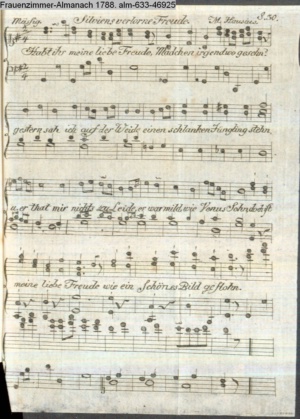 Frauenzimmer-Almanach 1788. alm-633-46925
Mässig. Silviens verlorne Freude. S. 30.
Habt ihr meine liebe Freude, Mädchen, irgendwo gesehn?
gestern sah ich auf der Weide einen schlanken Jüngling stehn,
u. er that mir nichts zu Leide, er war mild, wie Venus Sohn
meine liebe Freude wie ein Schönes Bild geflohn.